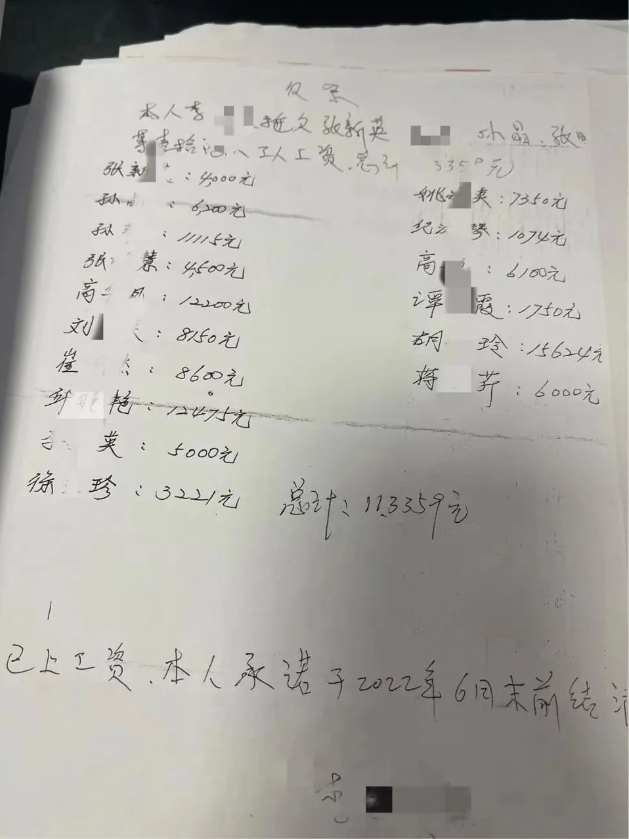 欠条
本人李 拖欠张新英 小晶、张
等拾六人工人工资,总计 3359元
张新 :4,000元
孙 :6,200元
孙 :11115元
张 慧:4,500元
高 :12200元
刘 :8150元
崔 :8600元
艳:12475元
英:5000元
徐 珍:3221元
姚 英:7350元
纪 琴:1074元
高 :6100元
谭 霞:1750元
胡 玲:15624元
蒋 :6000元
总计:113359元
已上工资、本人承诺于2022年6月末前结